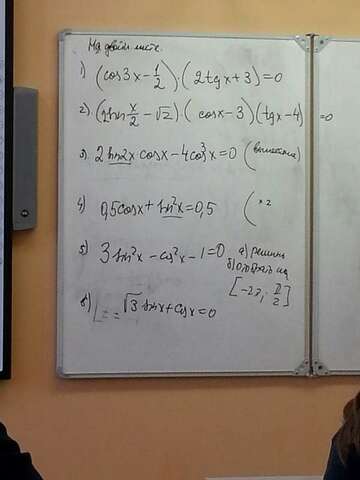 На двойн. листе.
1) (cos3x - 1/2)·(2tgx + 3) = 0
2) (2sin x/2 - √2)·(cosx - 3)(tgx - 4) = 0
3) 2sin2x·cosx - 4cos³x = 0
4) 0,5cosx + sin²x = 0,5 (×2
5) 3sin²x - cos²x - 1 = 0 а) решить
б) отобрать на
[-2π; π/2]
6) √3 sinx + cosx = 0